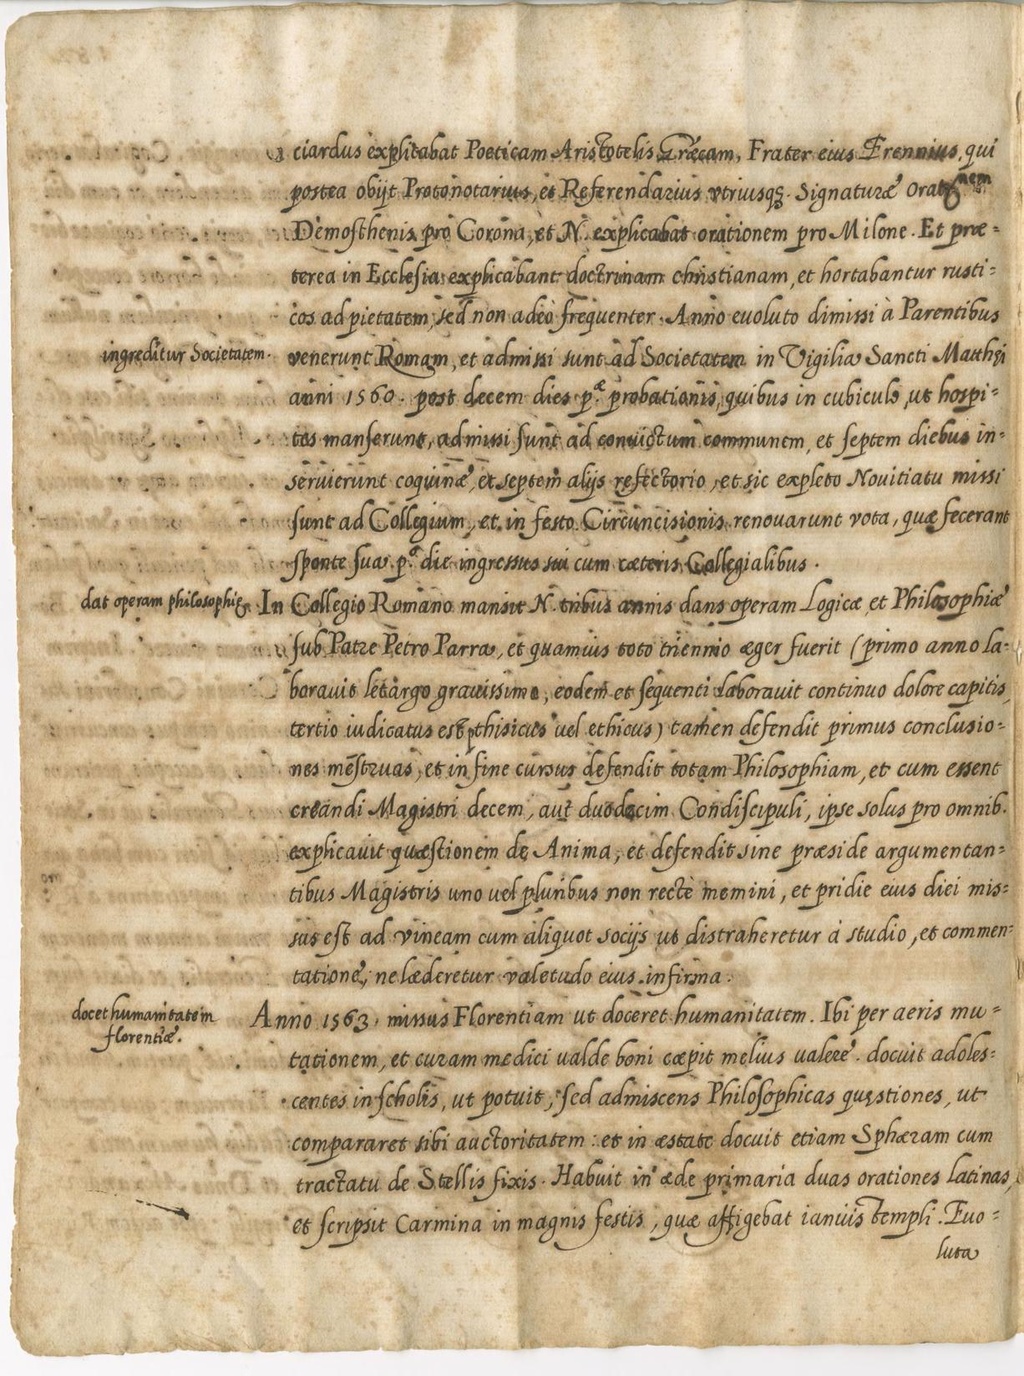 ciardus explicabat Poeticam Aristotelis Græcam, Frater eius Erennius, qui
postea obijt Protonotarius, et Referendarius vtriusq; Signaturæ oratnem
Demosthenis pro Corona, et N. explicabat orationem pro Milone. Et præ=
terea in Ecclesia explicabant doctrinam christianam, et hortabantur rusti=
cos ad pietatem, sed non adeò frequenter. Anno euoluto dimissi à Parentibus
ingreditur Societatem.
venerunt Romam, et admissi sunt ad Societatem in Vigilia Sancti Matthęi
anni 1560. post decem dies p.æ probationis, quibus in cubiculo, ut hospi=
tes manserunt, admissi sunt ad conuictum communem, et septem diebus in=
seruierunt coquinæ, et septem alijs refectorio, et sic expleto Nouitiatu missi
sunt ad Collegium, et in festo Circuncisionis renouarunt vota, quæ fecerant
sponte sua p.a die ingressus sui cum cæteris Collegialibus.
dat operam philosophię
In Collegio Romano mansit N. tribus annis dans operam Logicæ, et Philosophiæ
sub Patre Petro Parra, et quamuis toto triennio æger fuerit (primo anno la=
borauit letargo grauissimo, eodem et sequenti laborauit continuo dolore capitis,
tertio iudicatus est pthisicus uel ethicus) tamen defendit primus conclusio=
nes mēstruas, et in fine cursus defendit totam Philosophiam, et cum essent
creandi Magistri decem, aut duodecim Condiscipuli, ipse solus pro omnib.
explicauit quæstionem de Anima, et defendit sine præside argumentan=
tibus Magistris uno uel pluribus non rectè memini, et pridie eius diei mis=
sus est ad vineam cum aliquot socijs ut distraheretur à studio, et commen=
tatione, ne læderetur valetudo eius infirma.
docet humanitatem
florentiæ.
Anno 1563. missus Florentiam ut doceret humanitatem. Ibi per aeris mu=
tationem, et curam medici ualde boni cœpit melius ualere. docuit adoles=
centes in scholis, ut potuit, sed admiscens Philosophicas quęstiones, ut
compararet sibi auctoritatem: et in æstate docuit etiam Sphæram cum
tractatu de Stellis fixis. Habuit in æde primaria duas orationes latinas,
et scripsit Carmina in magnis festis, quæ affigebat ianuis templi. Euo=
luta